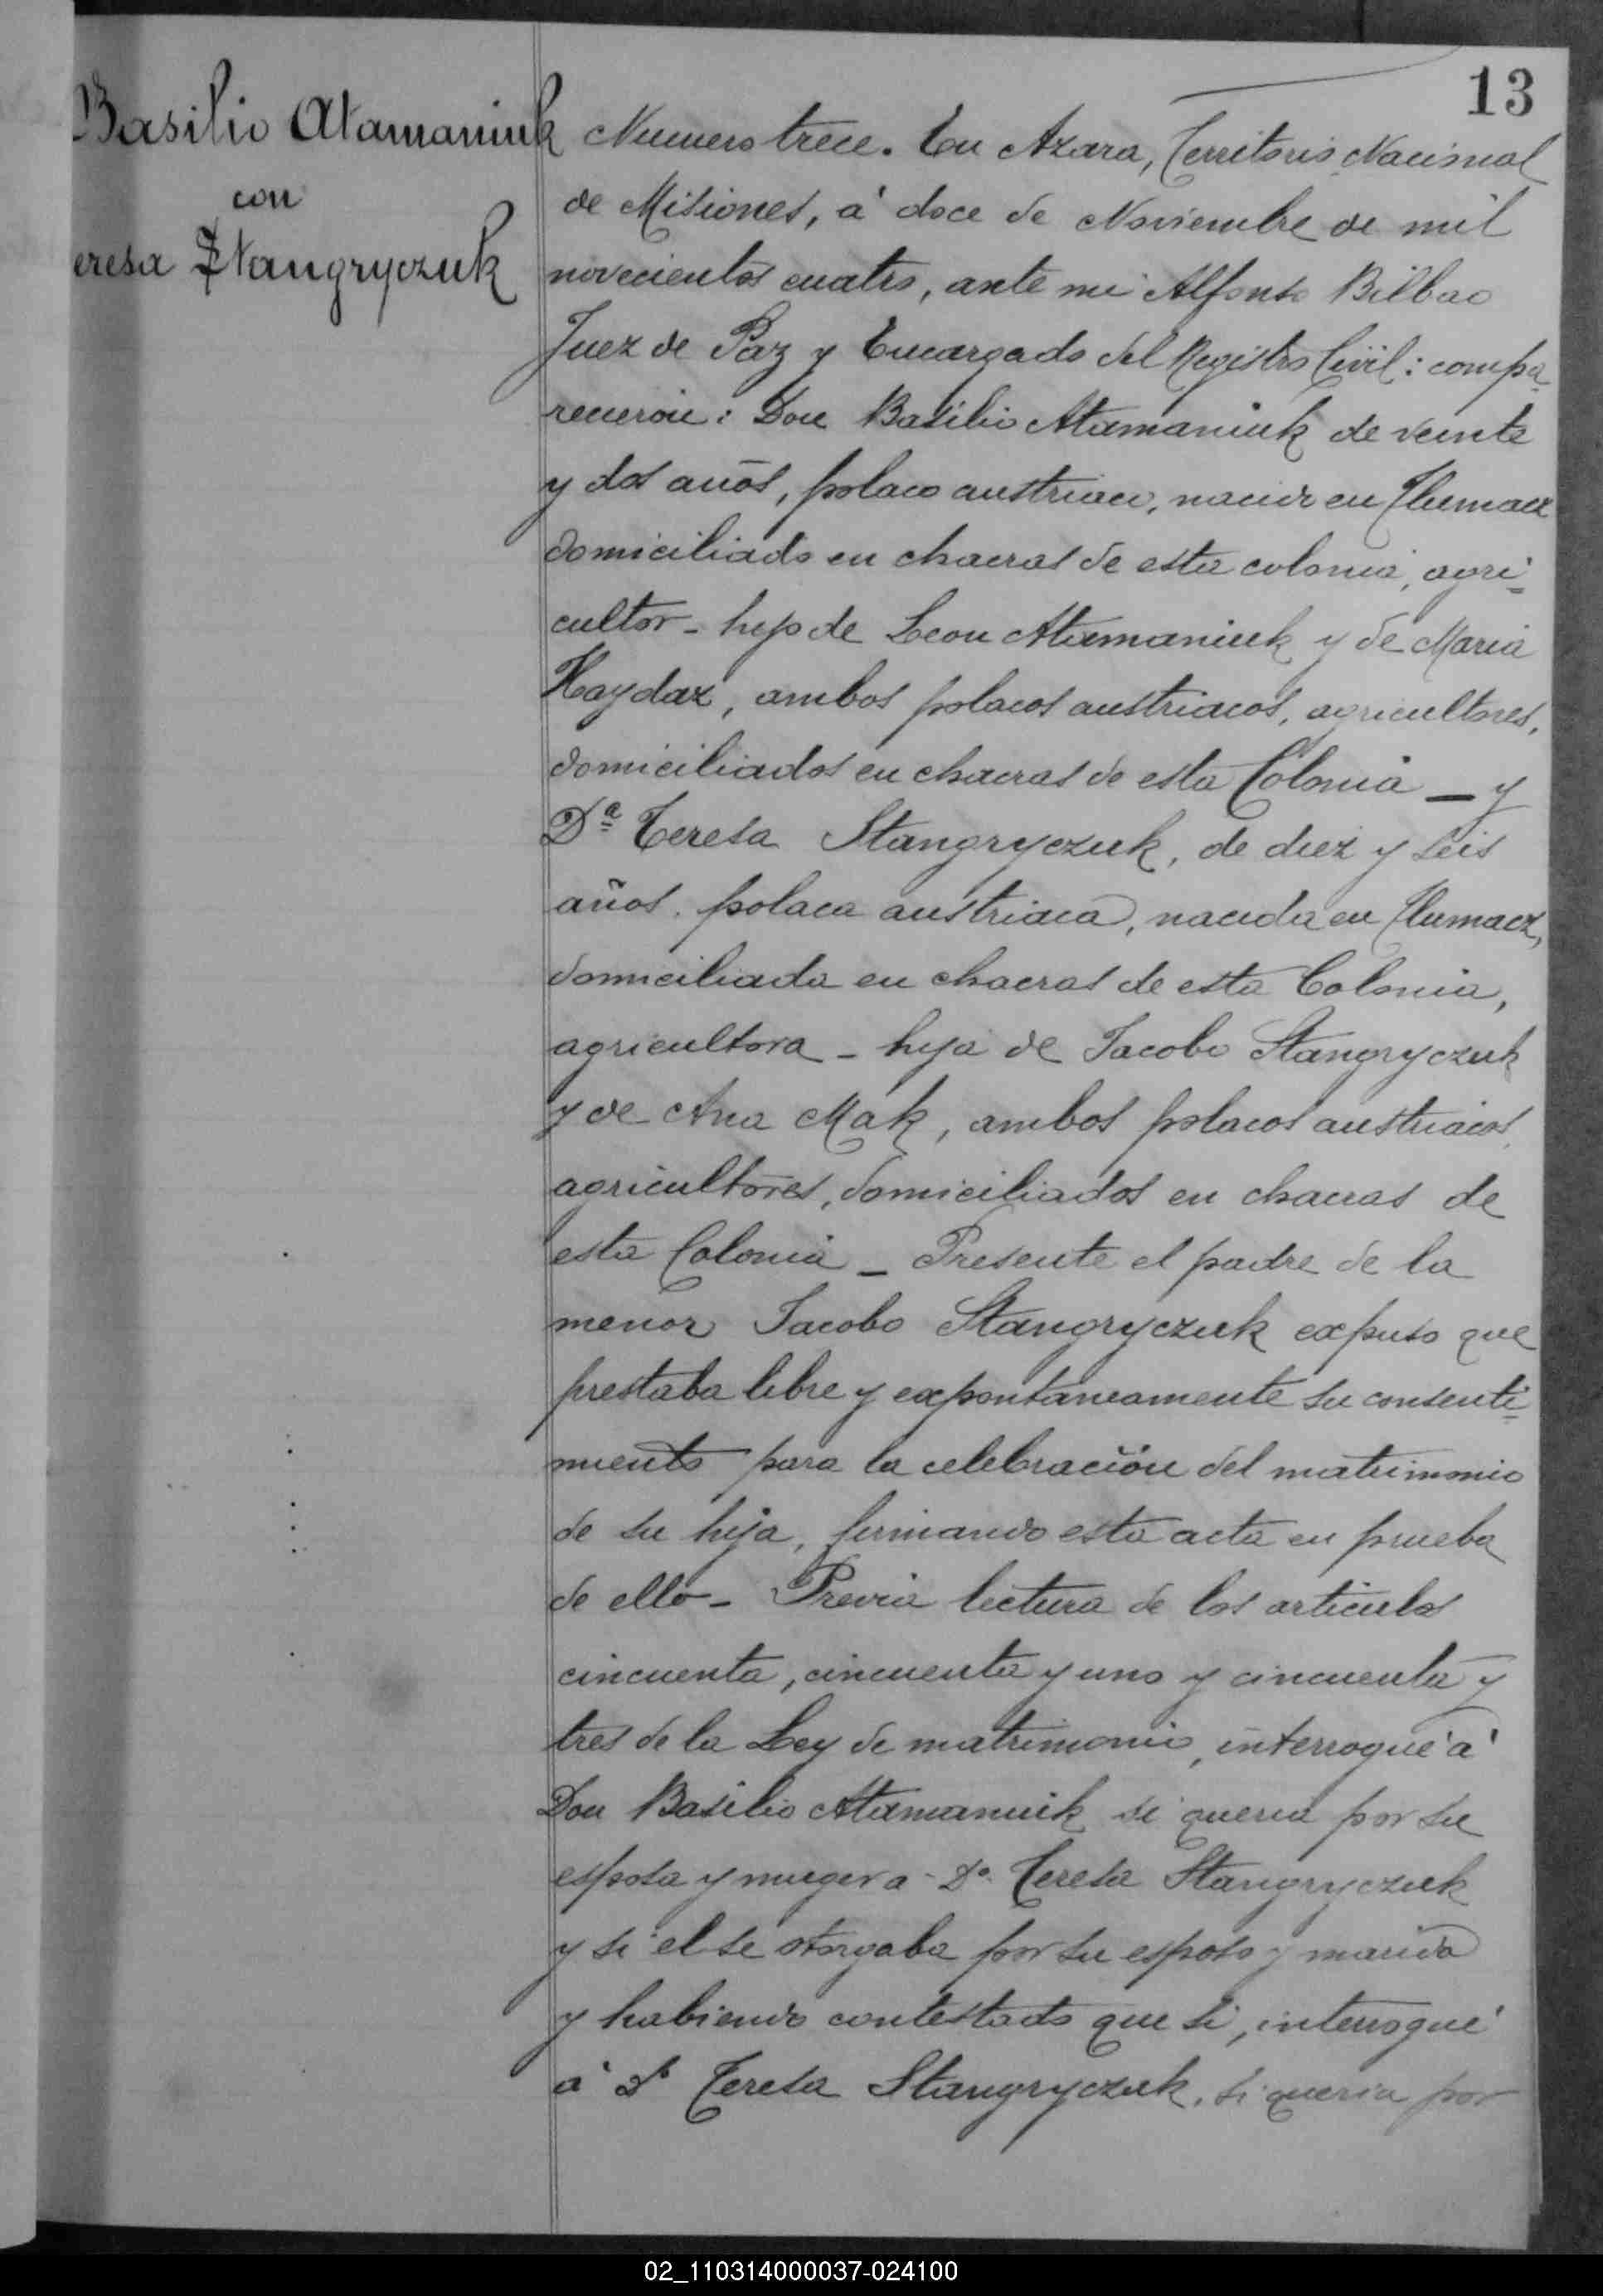 13
Basilio Atamaniuk
con
eresa Stangryczuk
Numero trece. En Azara, Territorio Nacional
de Misiones, á doce de Noviembre de mil
novecientos cuatro, ante mi Alfonso Bilbao
Juez de Paz y Encargado del Registro Civil: compa-
recieron: Don Basilio Atamaniuk de veinte
y dos años, polaco austriaco, nacido en Tlumacz
domiciliado en chacras de esta colonia, agri-
cultor - hijo de Leon Atamaniuk y de Maria
Haydaz, ambos polacos austriacos, agricultores,
domiciliados en chacras de esta Colonia _ y
Dª Teresa Stangryczuk, de diez y seis
años, polaca austriaca, nacida en Tlumacz,
domiciliada en chacras de esta Colonia,
agricultora - hija de Jacobo Stangryczuk
y de Ana Mak, ambos polacos austriacos,
agricultores, domiciliados en chacras de
esta Colonia _ Presente el padre de la
menor Jacobo Stangryczuk expuso que
prestaba libre y expontaneamente su consenti-
miento para la celebración del matrimonio
de su hija, firmando esta acta en prueba
de ello - Previa lectura de los articulos
cincuenta, cincuenta y uno y cincuenta y
tres de la Ley de matrimonio, interrogué á
Don Basilio Atamaniuk si queria por su
esposa y muger a Dª Teresa Stangryczuk
y si el se otorgaba por su esposo y marido
y habiendo contestado que si, interrogué
á Dª Teresa Stangryczuk, si queria por
02_110314000037-024100